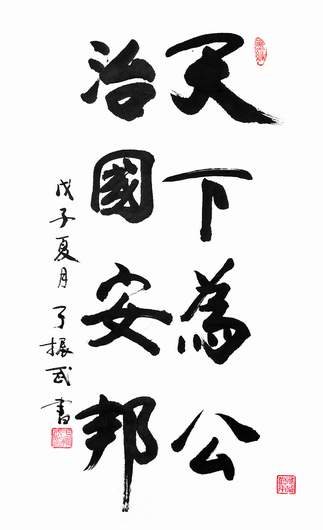 天下為公
治國安邦
戊子夏月
了振武書